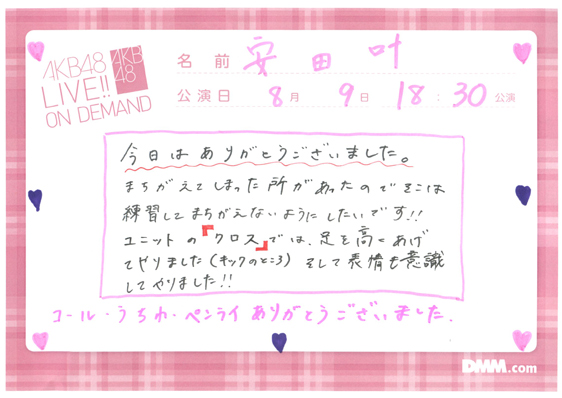 AKB48
LIVE!!
ON DEMAND
AKB
48
名前 安田 叶
公演日 8月 9日 18:30公演
今日はありがとうございました。
まちがえてしまった所があったのでそこは
練習してまちがえないようにしたいです!!
ユニットの『クロス』では、足を高くあげ
てやりました(キックのところ)そして表情も意識
してやりました!!
コール・うちわ・ペンライありがとうございました.
DMM.com